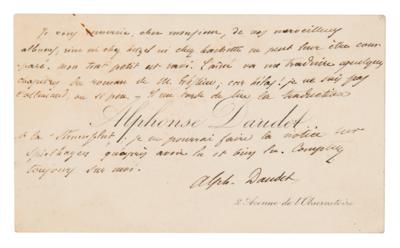 Je vous remercie, cher monsieur, de vos merveilleux
albums, rien ni chez Hetzel ni chez Hachette ne peut leur être com-
paré. mon tout petit est ravi. L'aîné va me traduire quelques
chapitres du roman de M. ; car hélas ! je ne sais pas
l'allemand, ou si peu. Il me tarde de lire la traduction
Alphonse Daudet
de la ; je ne pourrai faire la notice sur
Spielhagen qu'après avoir lu et bien lu. Comptez
toujours sur moi.
Alph. Daudet
3 Avenue de l'Observatoire